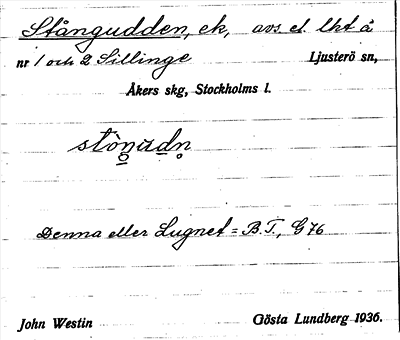 Stångudden, ek, avs el. lht å
nr 1 och 2 Sillinge Ljusterö sn,
Åkers skg, Stockholms l.
Denna eller Lugnet = B.T., G 76
John Westin Gösta Lundberg 1936.